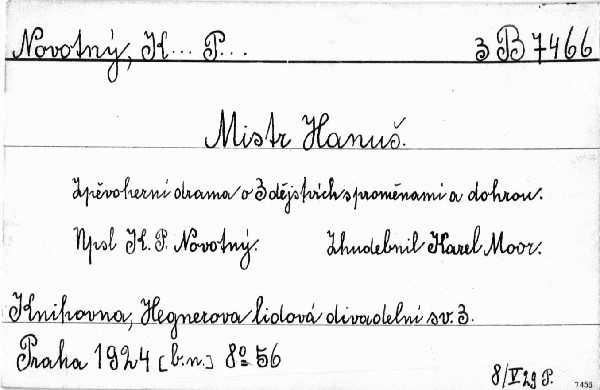 Novotný, K... P... 3 B 7466
Mistr Hanuš.
Zpěvoherní drama o 3 dějstvích s proměnami a dohrou.
Npsl K. P. Novotný. Zhudebnil Karel Moor.
Knihovna, Hegnerova lidová divadelní sv. 3.
Praha 1924 [b.n.] 8º 56
8/V 29 P.
7455